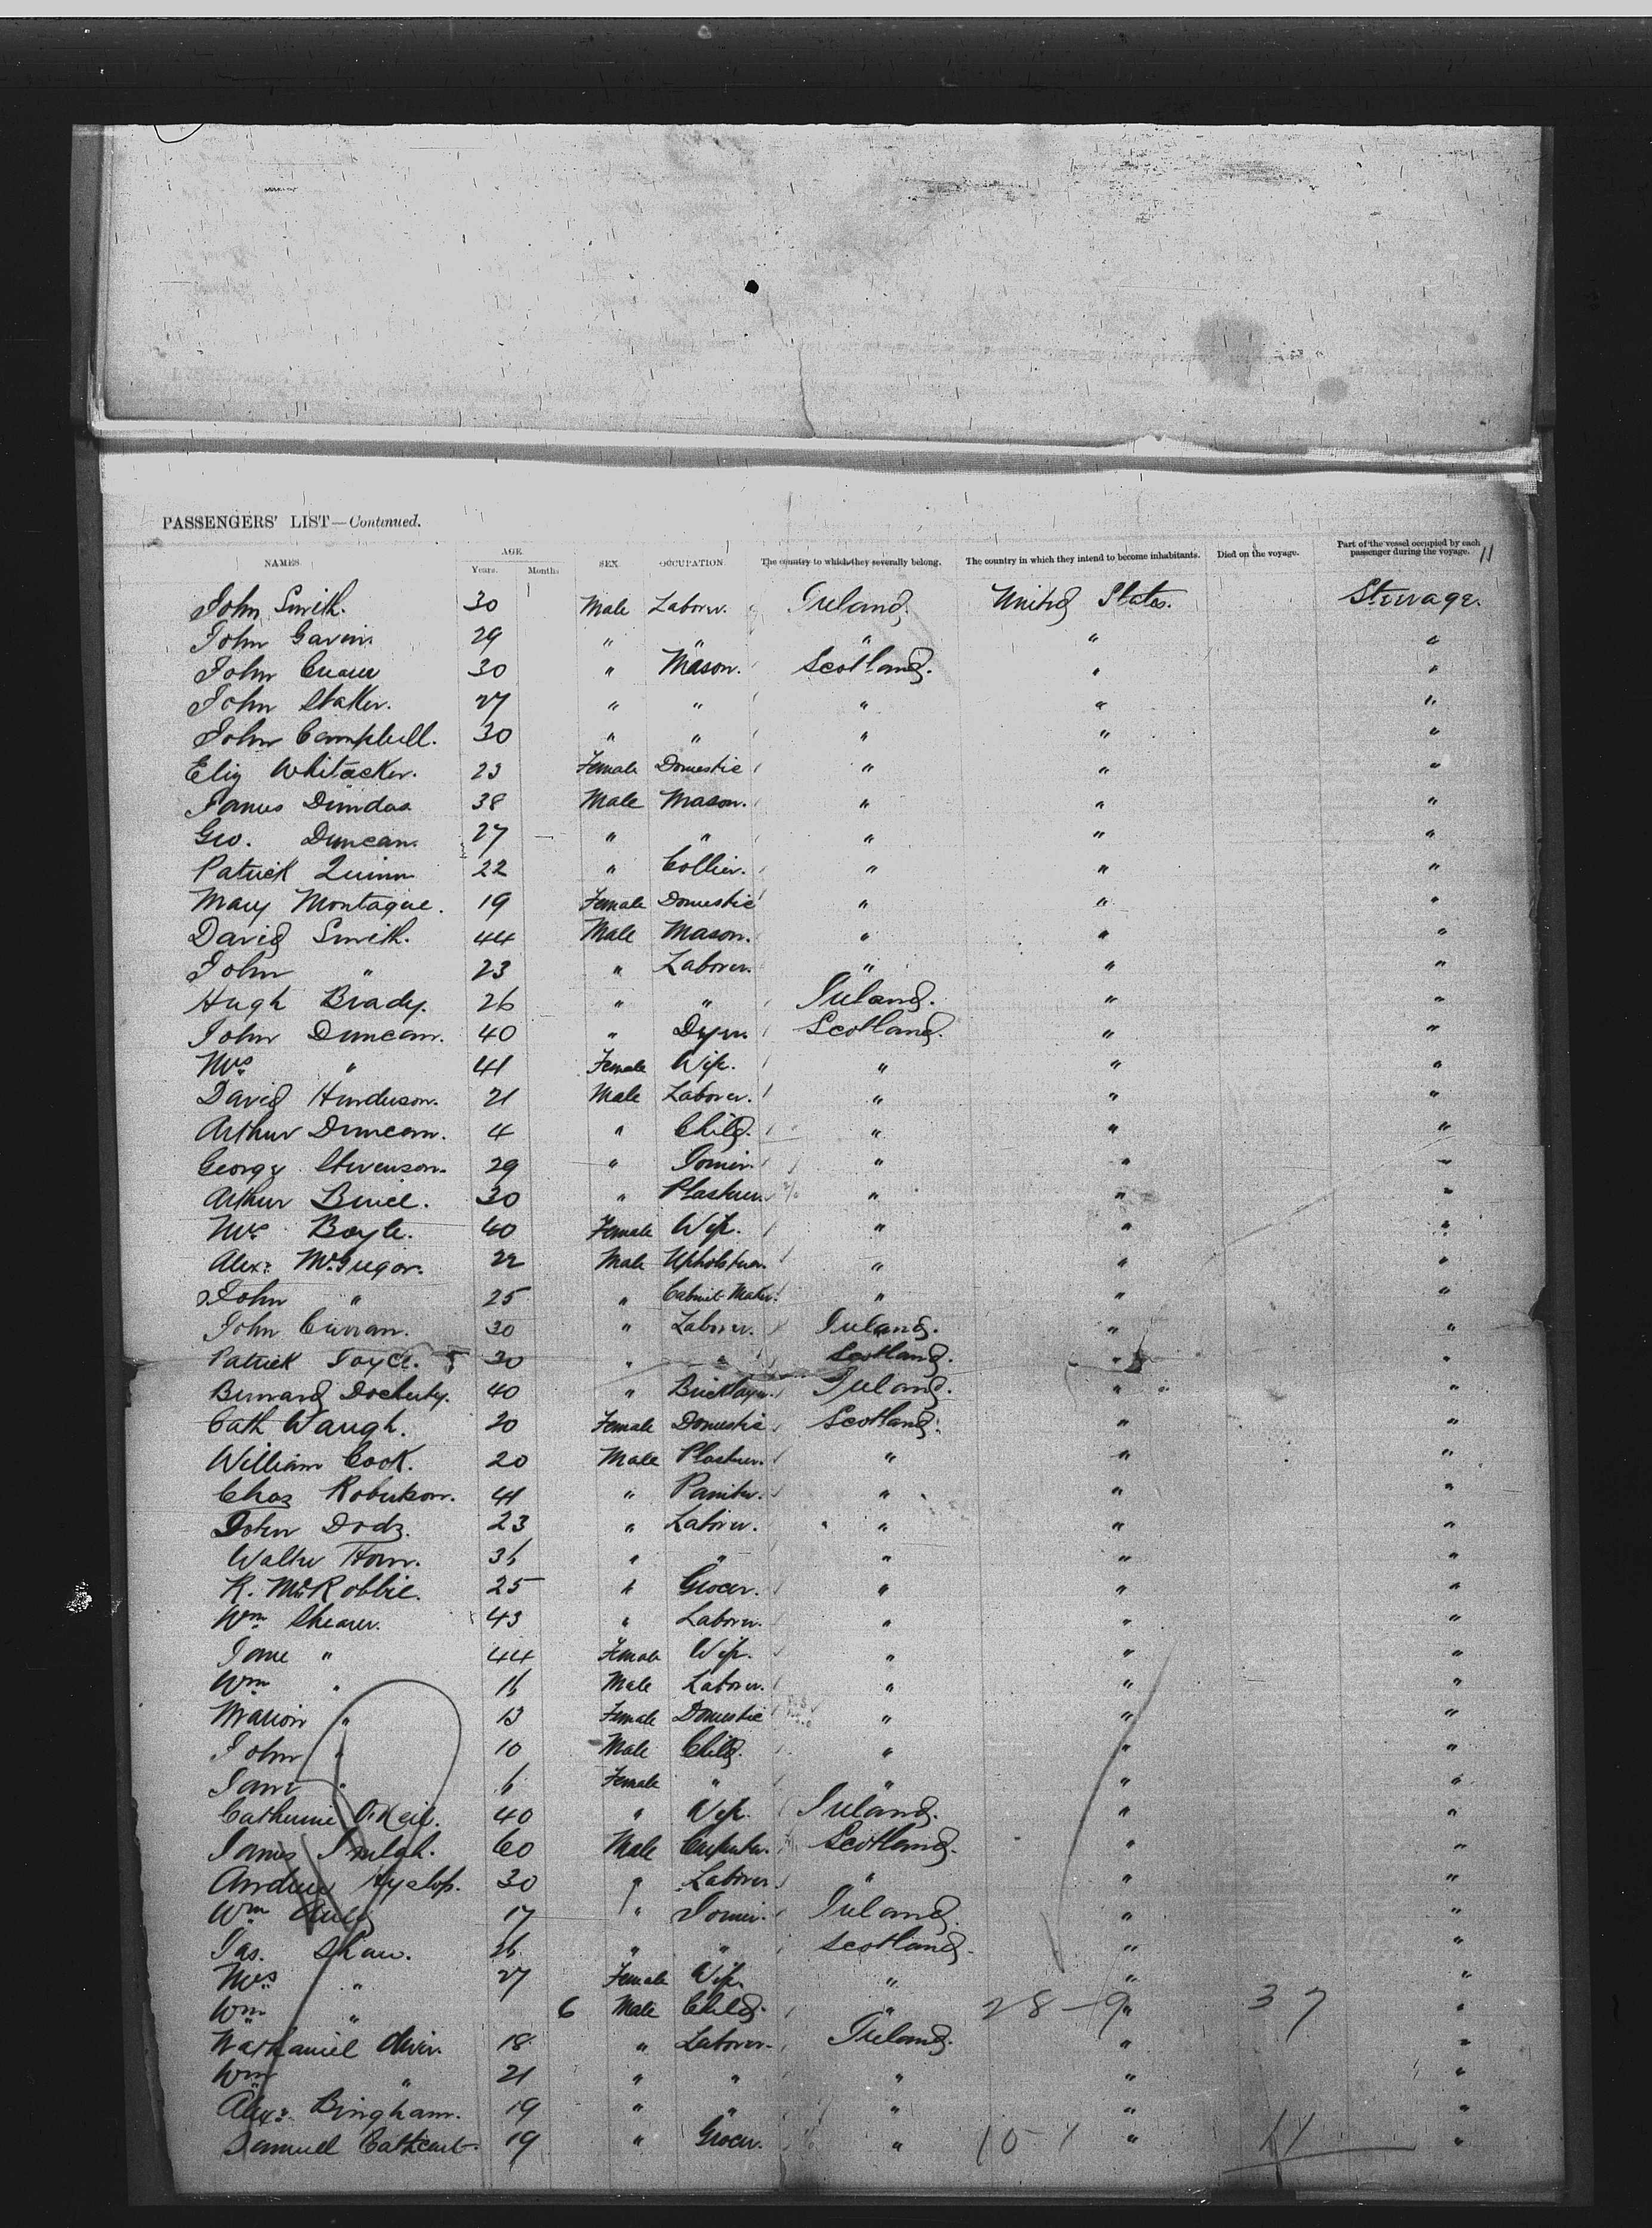 PASSENGERS' LIST—Continued.
11
NAMES. AGE. Years. Months. SEX. OCCUPATION. The country to which they severally belong. The country in which they intend to become inhabitants. Died on the voyage. Part of the vessel occupied by each passenger during the voyage.
John Smith. 30 Male Laborer. Ireland. United States. Steerage.
John Gavin. 29 " " " " "
John 30 " Mason. Scotland. " "
John Staker. 27 " " " " "
John Campbell. 30 " " " " "
Eliz Whitacker. 23 Female Domestic " " "
James Dundas 38 Male Mason. " " "
Geo. Duncan. 27 " " " " "
Patrick Quinn 22 " Collier. " " "
Mary Montague. 19 Female Domestic " " "
David Smith. 44 Male Mason. " " "
John " 23 " Laborer. " " "
Hugh Brady. 26 " " Ireland. " "
John Duncan. 40 " Dyer. Scotland. " "
Mrs " 41 Female Wife. " " "
David Henderson. 21 Male Laborer. " " "
Arthur Duncan. 4 " Child. " " "
George Stevenson. 29 " Joiner. " " "
Arthur Bruce. 30 " Plasterer. " " "
Mrs Boyle. 40 Female Wife. " " "
Alexr. McGregor. 22 Male Upholsterer. " " "
John " 25 " Cabinet Maker. " " "
John Curran. 30 " Laborer. Ireland. " "
Patrick Joyce. 30 " " Scotland. " "
Bernard Docherty. 40 " Bricklayer. Ireland. " "
Cath Waugh. 20 Female Domestic Scotland. " "
William Cook. 20 Male Plasterer. " " "
Chas Robertson. 41 " Painter. " " "
John Dodz. 23 " Laborer. " " "
Walter Horn. 36 " " " " "
R. McRobbie. 25 " Grocer. " " "
Wm Shearer. 43 " Laborer. " " "
Jane " 44 Female Wife. " " "
Wm " 16 Male Laborer. " " "
Marion " 13 Female Domestic " " "
John " 10 Male Child. " " "
Jane " 6 Female " " " "
Catherine O.Neil. 40 " Wife. Ireland. " "
James 60 Male Carpenter. Scotland. " "
Andrew Hyslop. 30 " Laborer. " " "
Wm 17 " Joiner. Ireland. " "
Jas. Shaw. 26 " " Scotland. " "
Mrs " 27 Female Wife. " " "
Wm " 6 Male Child. " 28-9 " 37 "
Nathaniel 18 " Laborer. Ireland. " "
Wm " 21 " " " " "
Alexr. Bingham. 19 " " " " "
Samuel Cathcart. 19 " Grocer. " 10-1 " 11 "